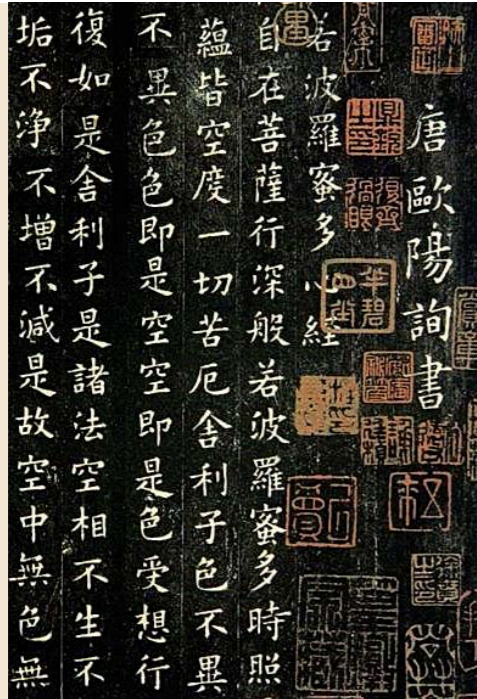 唐歐陽詢書
若波羅蜜多心經
自在菩薩行深般若波羅蜜多時照
蘊皆空度一切苦厄舍利子色不異
不異色色即是空空即是色受想行
復如是舍利子是諸法空相不生不
垢不浄不增不減是故空中無色無